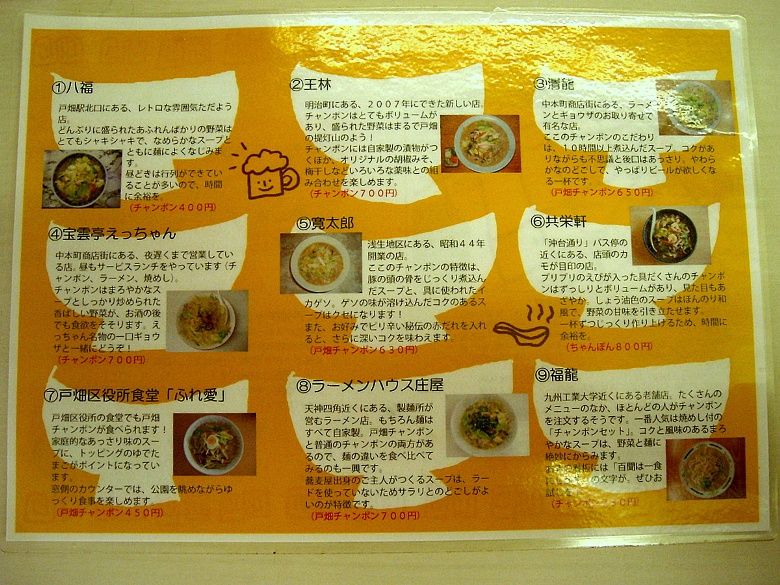 ①八福
戸畑駅北口にある、レトロな雰囲気ただよう店。
どんぶりに盛られたあふれんばかりの野菜は
とてもシャキシャキで、なめらかなスープと
ともに麺によくなじみます。
昼どきは行列ができて
いることが多いので、時間
に余裕を。
(チャンポン400円)
②王林
明治町にある、2007年にできた新しい店。
チャンポンはとてもボリュームが
あり、盛られた野菜はまるで戸畑
の提灯山のよう！
チャンポンには自家製の漬物がつ
くほか、オリジナルの胡椒みそ、
梅干しなどいろいろな薬味との組
み合わせを楽しめます。
(チャンポン700円)
③清龍
中本町商店街にある、ラーメ
ンとギョウザのお取り寄せで
有名な店。
ここのチャンポンのこだわり
は、10時間以上煮込んだスープ。コクがあ
りながらも不思議と後口はあっさり、やわら
かなのどこしで、やっぱりビールが欲しくな
る一杯です。
(戸畑チャンポン650円)
④宝雲亭えっちゃん
中本町商店街にある、夜遅くまで営業してい
る店。昼もサービスランチをやっています（チ
ャンポン、ラーメン、焼めし）。
チャンポンはまろやかなス
ープとしっかり炒められた
香ばしい野菜が、お酒の後
でも食欲をそそります。え
っちゃん名物の一口ギョウ
ザと一緒にどうぞ！
(チャンポン700円)
⑤寛太郎
浅生地区にある、昭和44年
開業の店。
ここのチャンポンの特徴は、
豚の頭の骨をじっくり煮込ん
だスープと、具に使われたイ
カゲソ。ゲソの味が溶け込んだコクのあるス
ープはクセになります！
また、お好みでピリ辛い秘伝のあだれを入れ
ると、さらに深いコクを味わえます。
(戸畑チャンポン630円)
⑥共栄軒
「沖台通り」バス停
の近くにある、店頭のカ
モが目印の店。
プリプリのえびが入った具だくさんのチャンポ
ンはずっしりとボリュームがあり、見た目もあ
ざやか。しょう油色のスープはほんのり和
風で、野菜の甘味を引き立たせます。
一杯ずつじっくり作り上げるため、時間に
余裕を。
(ちゃんぽん800円)
⑦戸畑区役所食堂「ふれ愛」
戸畑区役所の食堂でも戸畑
チャンポンが食べられます！
家庭的なあっさり味のスー
プに、トッピングのゆでた
まごがポイントになってい
ます。
窓側のカウンターでは、公園を眺めながらゆ
っくり食事を楽しめます。
(戸畑チャンポン450円)
⑧ラーメンハウス庄屋
天神四角近くにある、製麺所が
営むラーメン店。もちろん麺は
すべて自家製。戸畑チャンポン
と普通のチャンポンの両方があ
るので、麺の違いを食べ比べて
みるのも一興です。
蕎麦屋出身のご主人がつくるスープは、ラー
ドを使っていないためサラリとのどごしがよ
いのが特徴です。
(戸畑チャンポン700円)
⑨福龍
九州工業大学近くにある老舗店。たくさんの
メニューのなか、ほとんどの人がチャンポン
を注文するそうです。一番人気は焼めし付の
「チャンポンセット」。コクと風味のあるまろ
やかなスープは、野菜と麺に
絶妙にからみます。
には「百聞は一食
の文字が。ぜひお